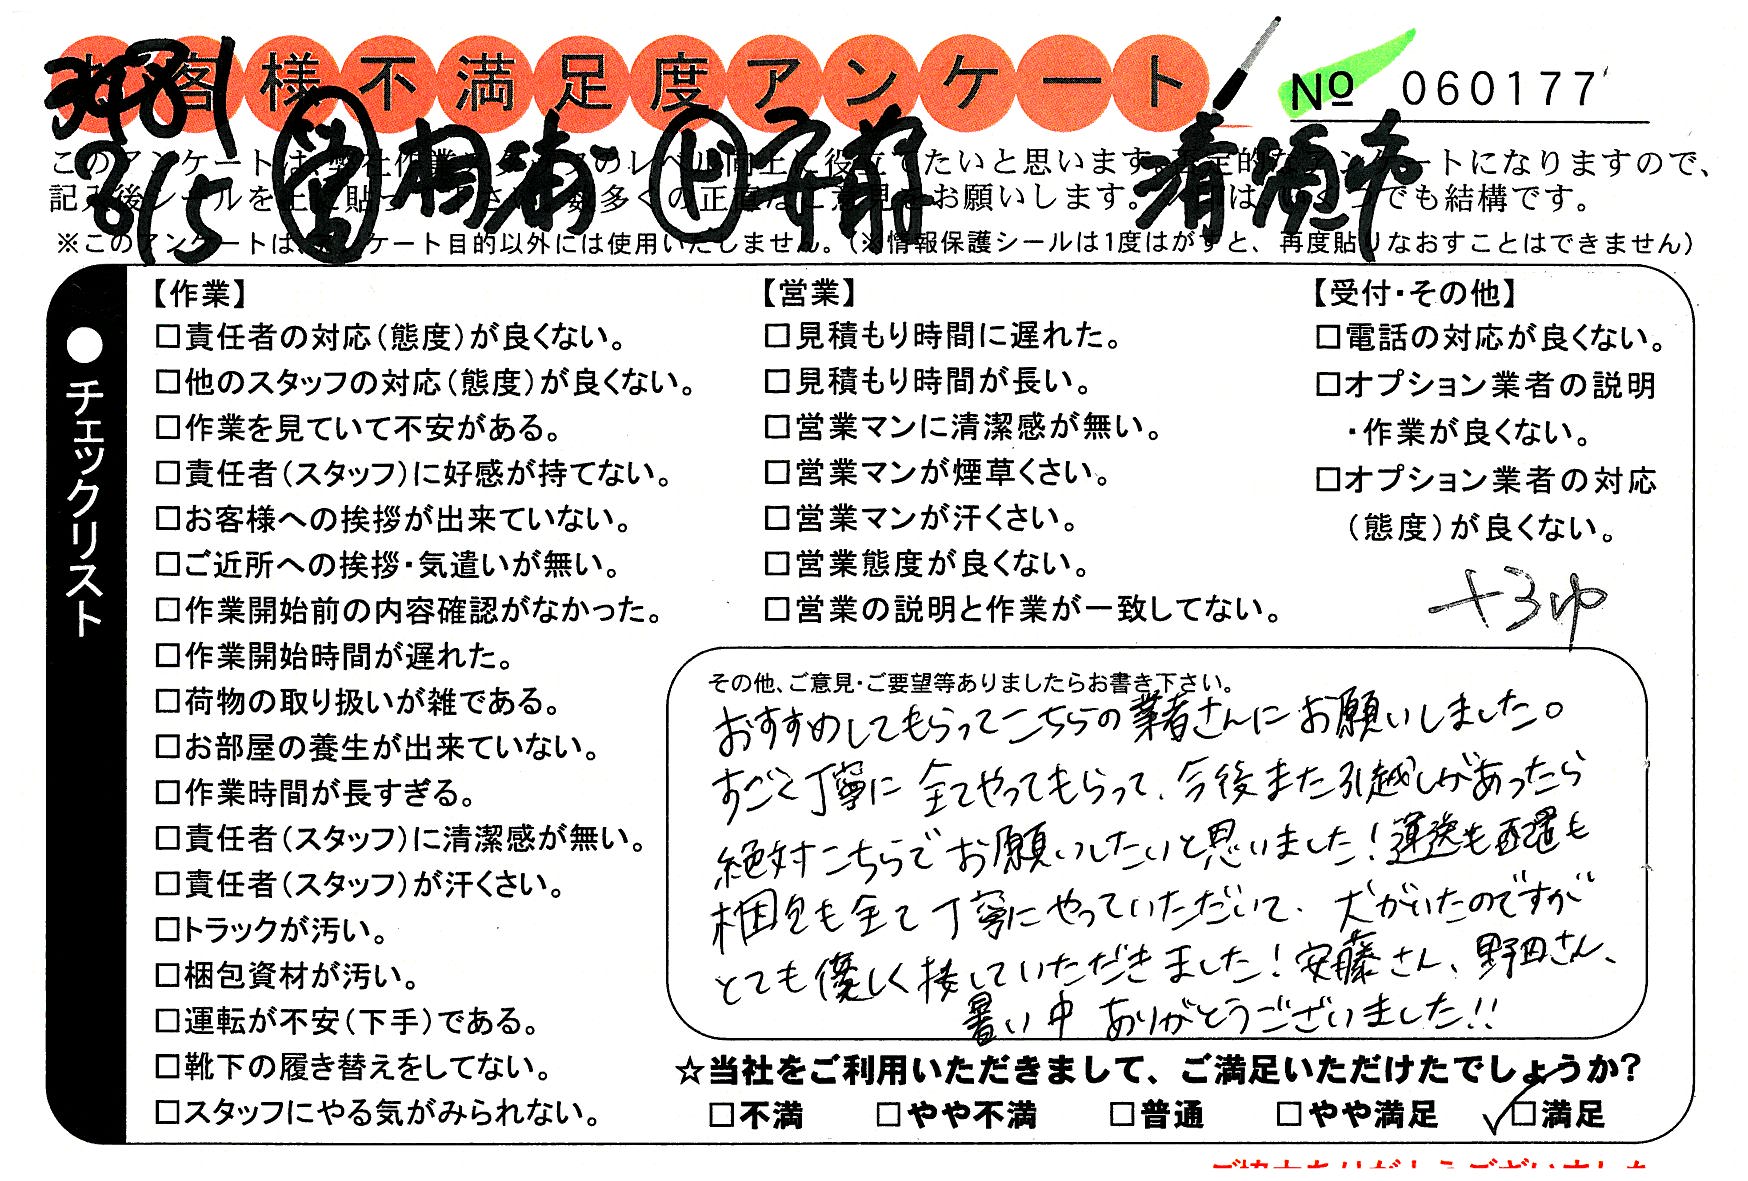 お客様不満足度アンケート
No 060177
3981
8/5
このアンケートは、弊社作業スタッフのレベル向上に役立てたいと思います。
アンケートになりますので、
記入後シールを上に貼って下さい。
数多くの正直なご意見をお願いします。
でも結構です。
※このアンケートは、アンケート目的以外には使用いたしません。(※情報保護シールは1度はがすと、再度貼りなおすことはできません)
●チェックリスト
【作業】
□責任者の対応(態度)が良くない。
□他のスタッフの対応(態度)が良くない。
□作業を見ていて不安がある。
□責任者(スタッフ)に好感が持てない。
□お客様への挨拶が出来ていない。
□ご近所への挨拶・気遣いが無い。
□作業開始前の内容確認がなかった。
□作業開始時間が遅れた。
□荷物の取り扱いが雑である。
□お部屋の養生が出来ていない。
□作業時間が長すぎる。
□責任者(スタッフ)に清潔感が無い。
□責任者(スタッフ)が汗くさい。
□トラックが汚い。
□梱包資材が汚い。
□運転が不安(下手)である。
□靴下の履き替えをしてない。
□スタッフにやる気がみられない。
【営業】
□見積もり時間に遅れた。
□見積もり時間が長い。
□営業マンに清潔感が無い。
□営業マンが煙草くさい。
□営業マンが汗くさい。
□営業態度が良くない。
□営業の説明と作業が一致してない。
【受付・その他】
□電話の対応が良くない。
□オプション業者の説明
・作業が良くない。
□オプション業者の対応
(態度)が良くない。
その他、ご意見・ご要望等ありましたらお書き下さい。
おすすめしてもらってこちらの業者さんにお願いしました。
すごく丁寧に全てやってもらって、今後また引越しがあったら
絶対こちらでお願いしたいと思いました!運送も配置も
梱包も全て丁寧にやっていただいて、犬がいたのですが
とても優しく接していただきました!安藤さん、野田さん、
暑い中 ありがとうございました!!
☆当社をご利用いただきまして、ご満足いただけたでしょうか?
□不満 □やや不満 □普通 □やや満足 ✓□満足
ご協力ありがとうございました